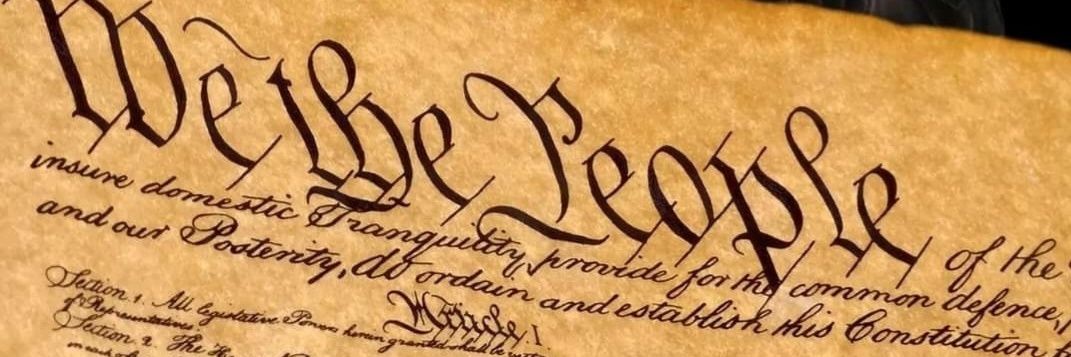 We the People of the
insure domestic Tranquility, provide for the common defence,
and our Posterity, do ordain and establish this Constitution
Article. I.
Section. 1. All legislative Powers herein granted shall be
of Representatives.
Section. 2. The